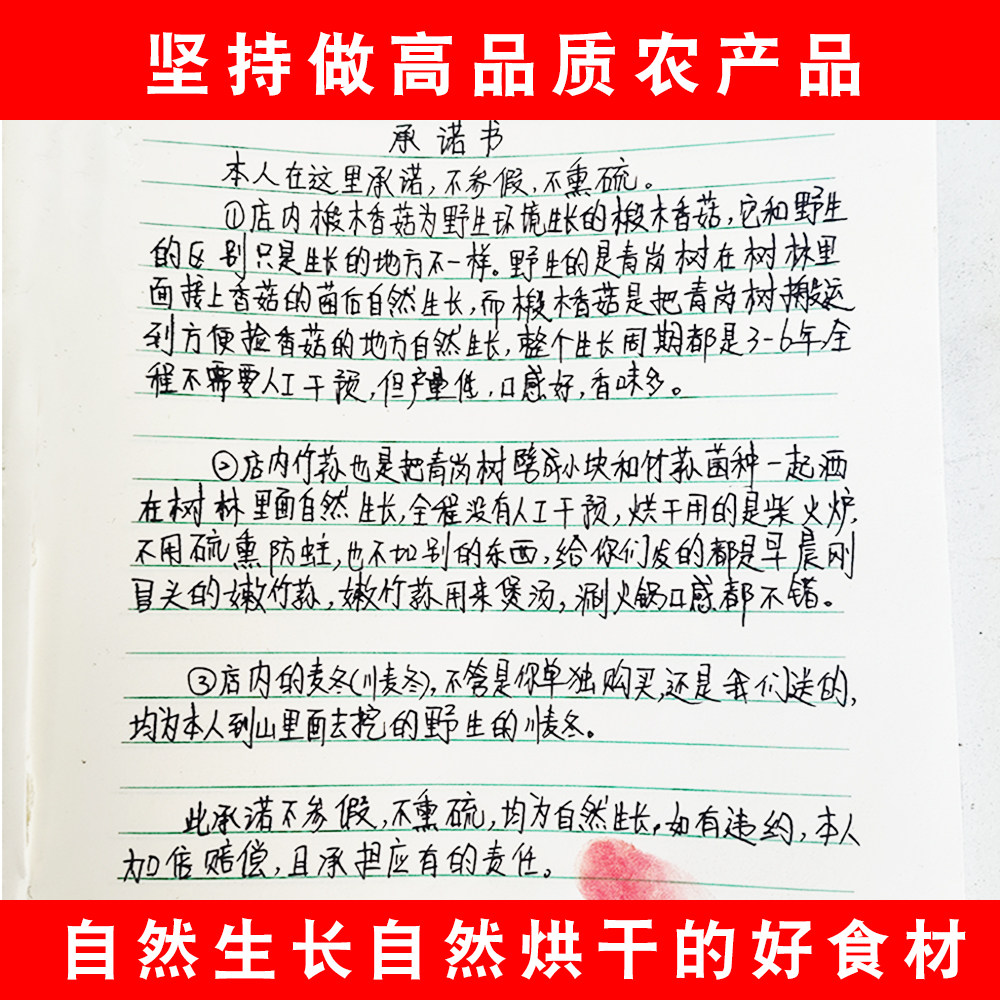 坚持做高品质农产品
承诺书
本人在这里承诺,不参假,不熏硫。
①店内椴木香菇为野生环境生长的椴木香菇,它和野生
的区别只是生长的地方不一样。野生的是青岗树在树林里
面接上香菇的菌后自然生长,而椴木香菇是把青岗树搬运
到方便捡香菇的地方自然生长,整个生长周期都是3-6年,全
程不需要人工干预,但产量低,口感好,香味多。
②店内竹荪也是把青岗树劈成小块和竹荪菌种一起洒
在树林里面自然生长,全程没有人工干预,烘干用的是柴火炉,
不用硫熏防蛀,也不加别的东西,给你们发的都是早晨刚
冒头的嫩竹荪,嫩竹荪用来煲汤,涮火锅口感都不错。
③店内的麦冬(川麦冬),不管是你单独购买,还是我们送的,
均为本人到山里面去挖的野生的川麦冬。
此承诺不参假,不熏硫,均为自然生长,如有违约,本人
加倍赔偿,且承担应有的责任。
自然生长自然烘干的好食材